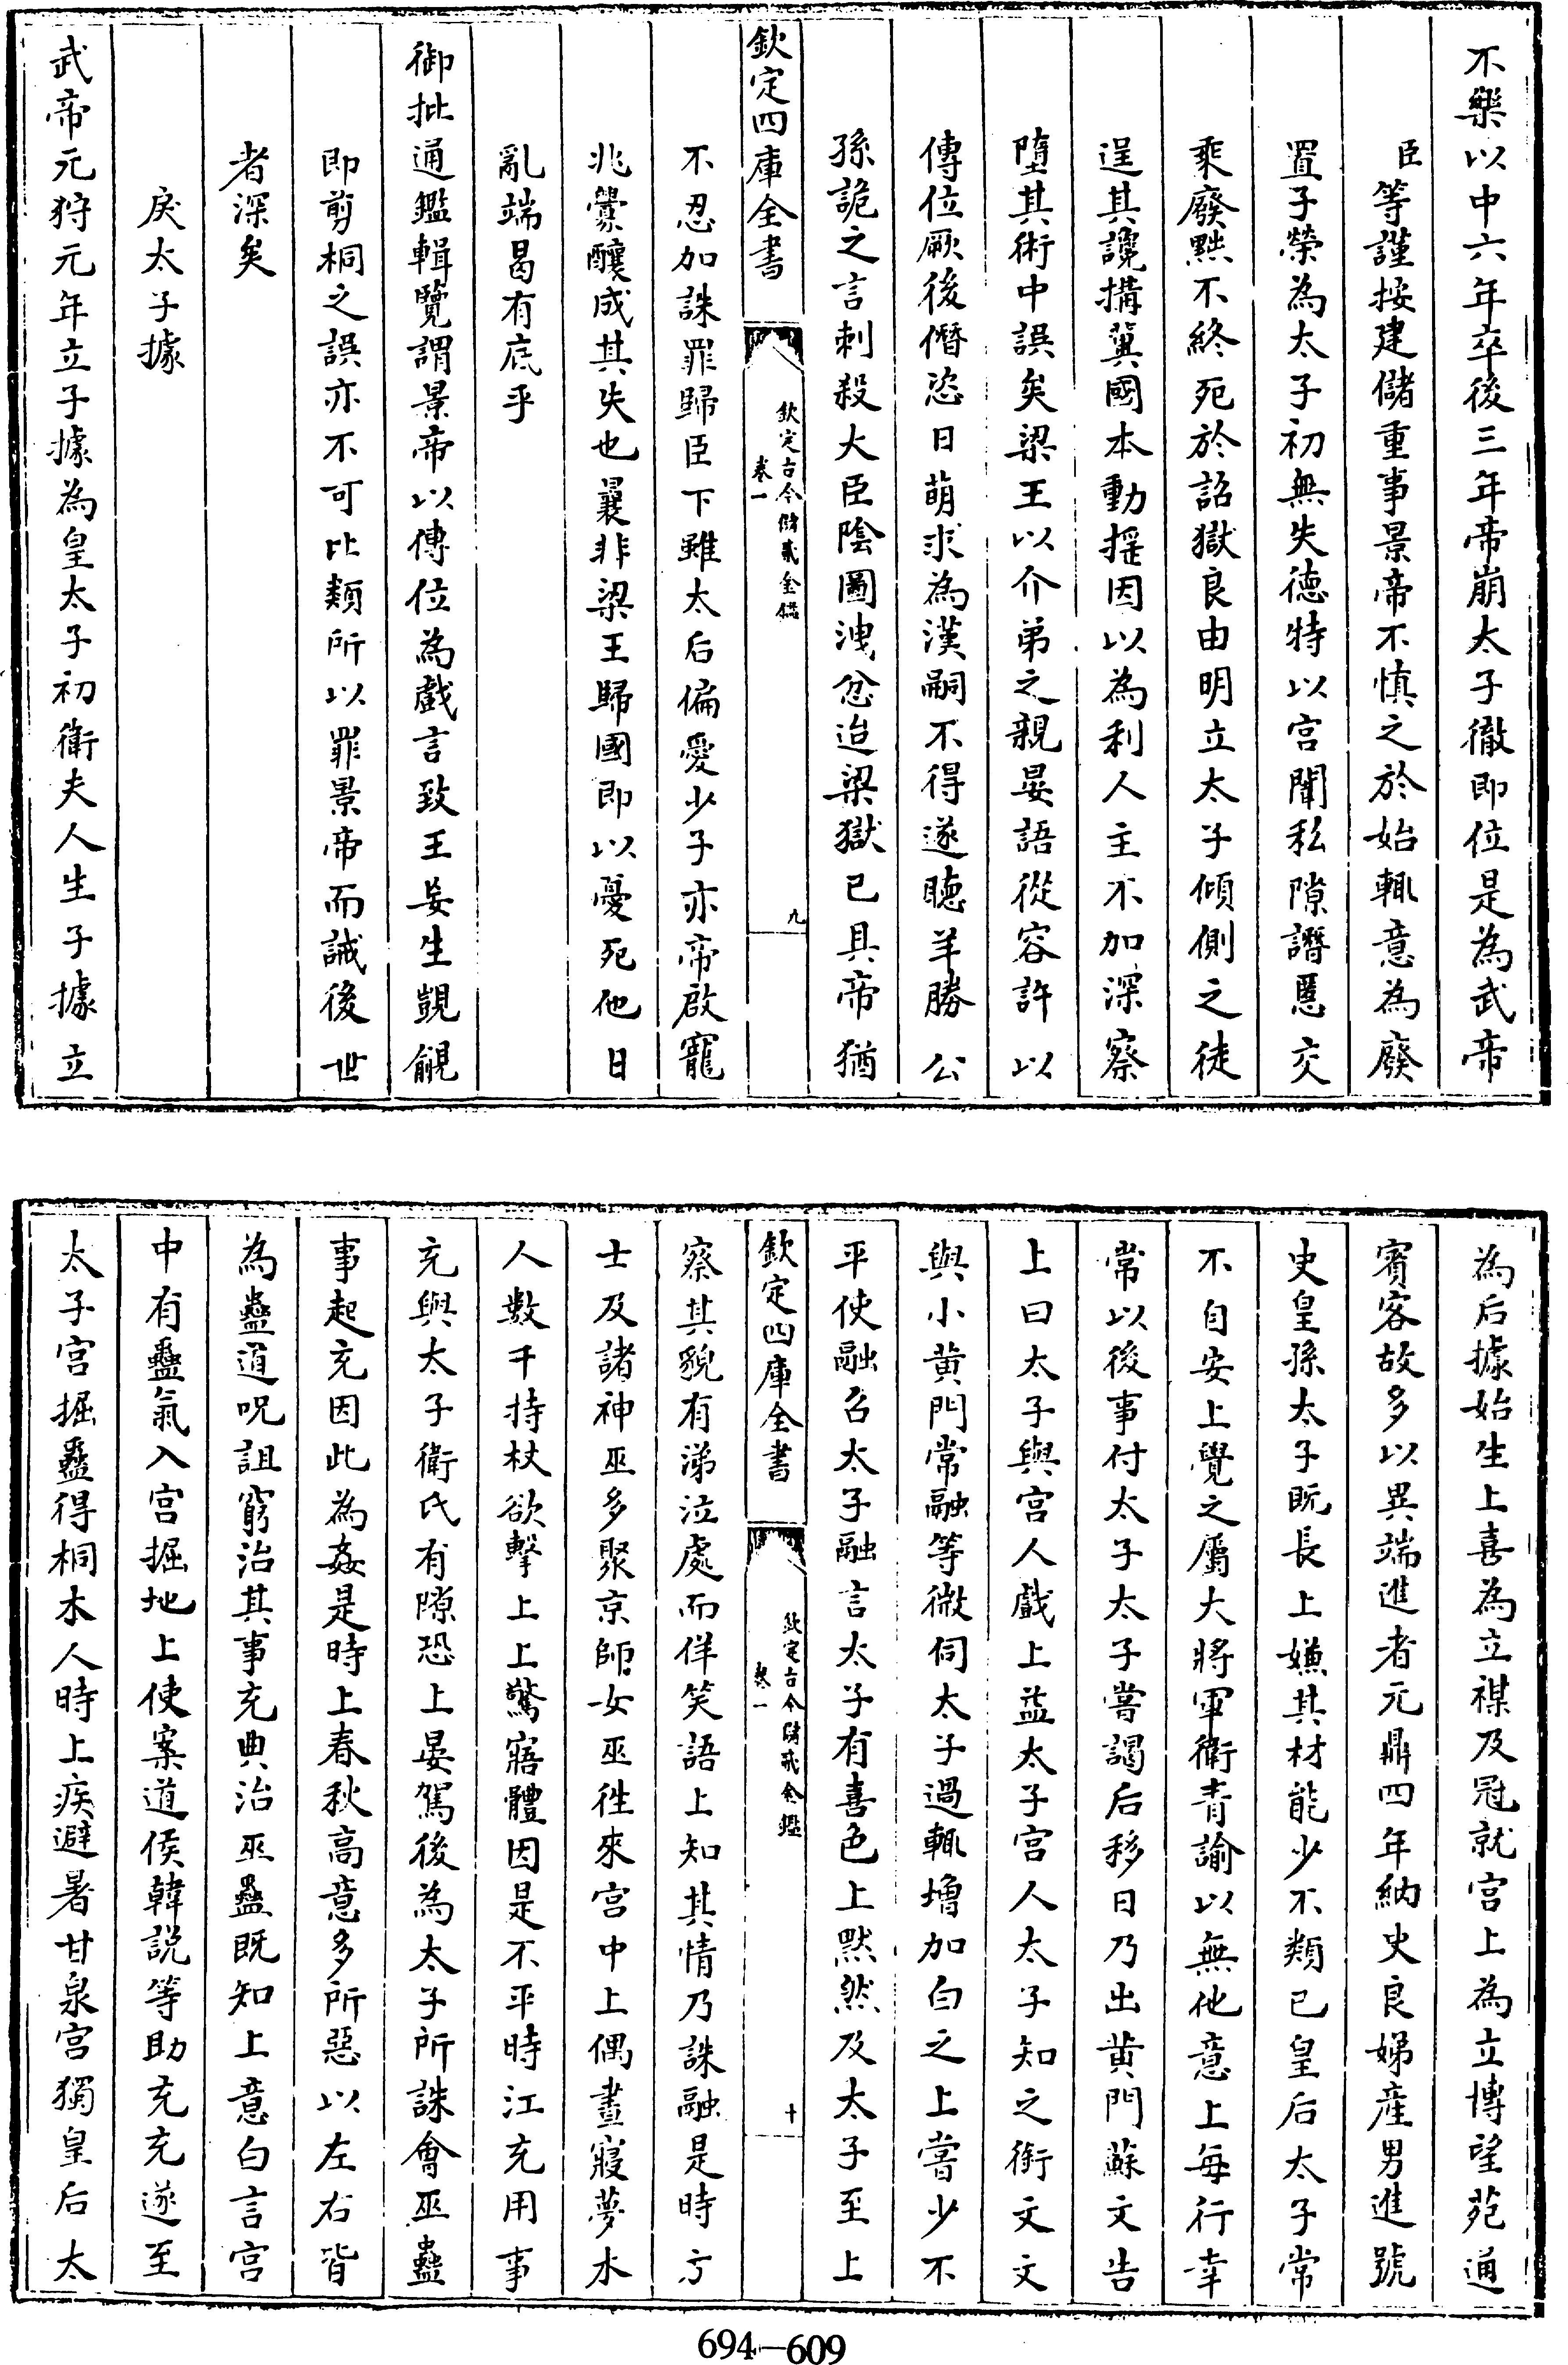 不樂以中六年卒後三年帝崩太子徹即位是為武帝
臣等謹按建儲重事景帝不慎之於始輒意為廢
置子榮為太子初無失德特以宮闈私隙譖慝交
乘廢黜不終死於詔獄良由明立太子傾側之徒
逞其讒搆冀國本動揺因以為利人主不加深察
墮其術中誤矣梁王以介弟之親晏語從容許以
傳位厥後僭恣日萌求為漢嗣不得遂聴羊勝公
孫詭之言刺殺大臣陰圖洩忿迨梁獄已具帝猶
欽定四庫全書
欽定古今儲貳金鑑
卷一
九
不忍加誅罪歸臣下雖太后偏愛少子亦帝啟寵
兆釁釀成其失也曩非梁王歸國即以憂死他日
亂端曷有底乎
御批通鑑輯覽謂景帝以傳位為戲言致王妄生覬覦
即剪桐之誤亦不可比類所以罪景帝而誡後世
者深矣
戾太子據
武帝元狩元年立子據為皇太子初衛夫人生子據立
為后據始生上喜為立禖及冠就宮上為立博望苑通
賓客故多以異端進者元鼎四年納史良娣產男進號
史皇孫太子既長上嫌其材能少不類已皇后太子常
不自安上覺之屬大將軍衛青諭以無他意上每行幸
常以後事付太子太子嘗謁后移日乃出黄門蘇文告
上曰太子與宮人戲上益太子宮人太子知之銜文文
與小黄門常融等微伺太子過輒增加白之上嘗少不
平使融召太子融言太子有喜色上黙然及太子至上
欽定四庫全書
欽定古今儲貳金鑑
卷一
十
察其貌有涕泣處而佯笑語上知其情乃誅融是時方
士及諸神巫多聚京師女巫徃來宮中上偶晝寢夢木
人數千持杖欲擊上上驚寤體因是不平時江充用事
充與太子衛氏有隙恐上晏駕後為太子所誅會巫蠱
事起充因此為姦是時上春秋高意多所惡以左右皆
為蠱道呪詛窮治其事充典治巫蠱既知上意白言宮
中有蠱氣入宮掘地上使案道侯韓説等助充充遂至
太子宮掘蠱得桐木人時上疾避暑甘泉宮獨皇后太
694—609